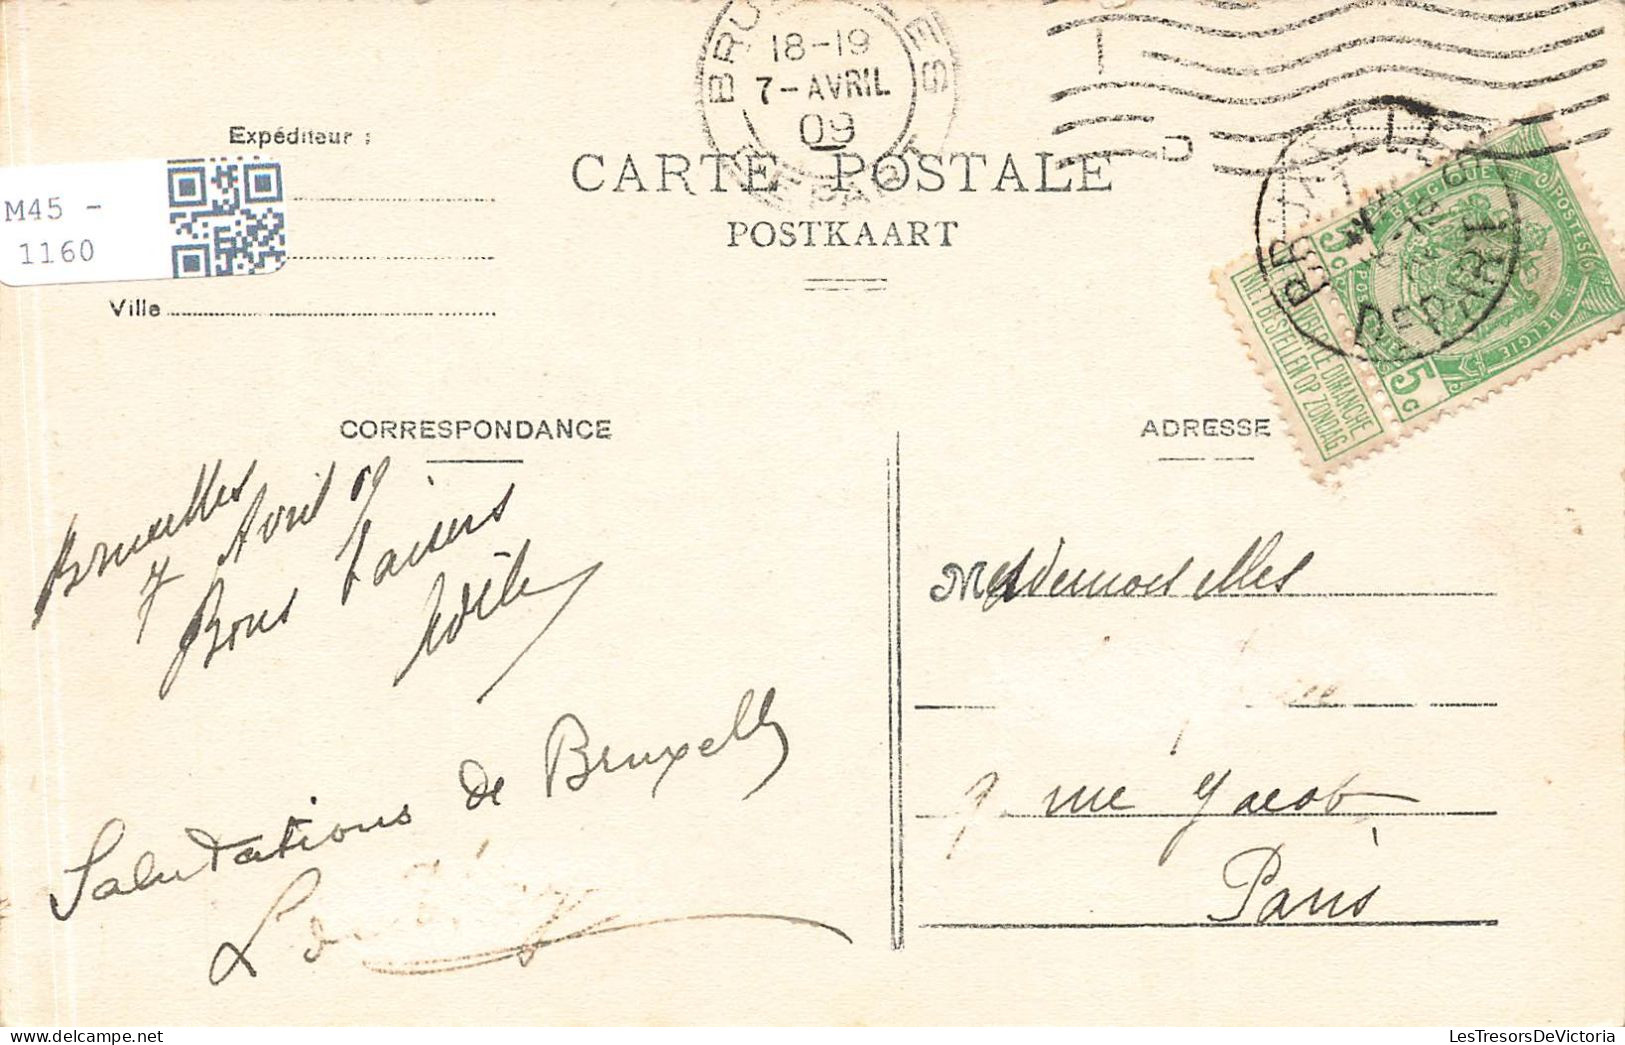 BRUXELLES
18-19
7-AVRIL
09
DEPART
Expéditeur :
CARTE POSTALE
POSTKAART
M45 -
1160
Ville
BRUXELLES
DEPART
POSTES
BELGIQUE
BELGIE
5c
5c
NE PAS LIVRER LE DIMANCHE
NIET BESTELLEN OP ZONDAG
CORRESPONDANCE
ADRESSE
Bruxelles
7 Avril 09
Bons baisers
Salutations de Bruxelles
Mesdemoiselles
rue Jacob
Paris
LesTresorsDeVictoria